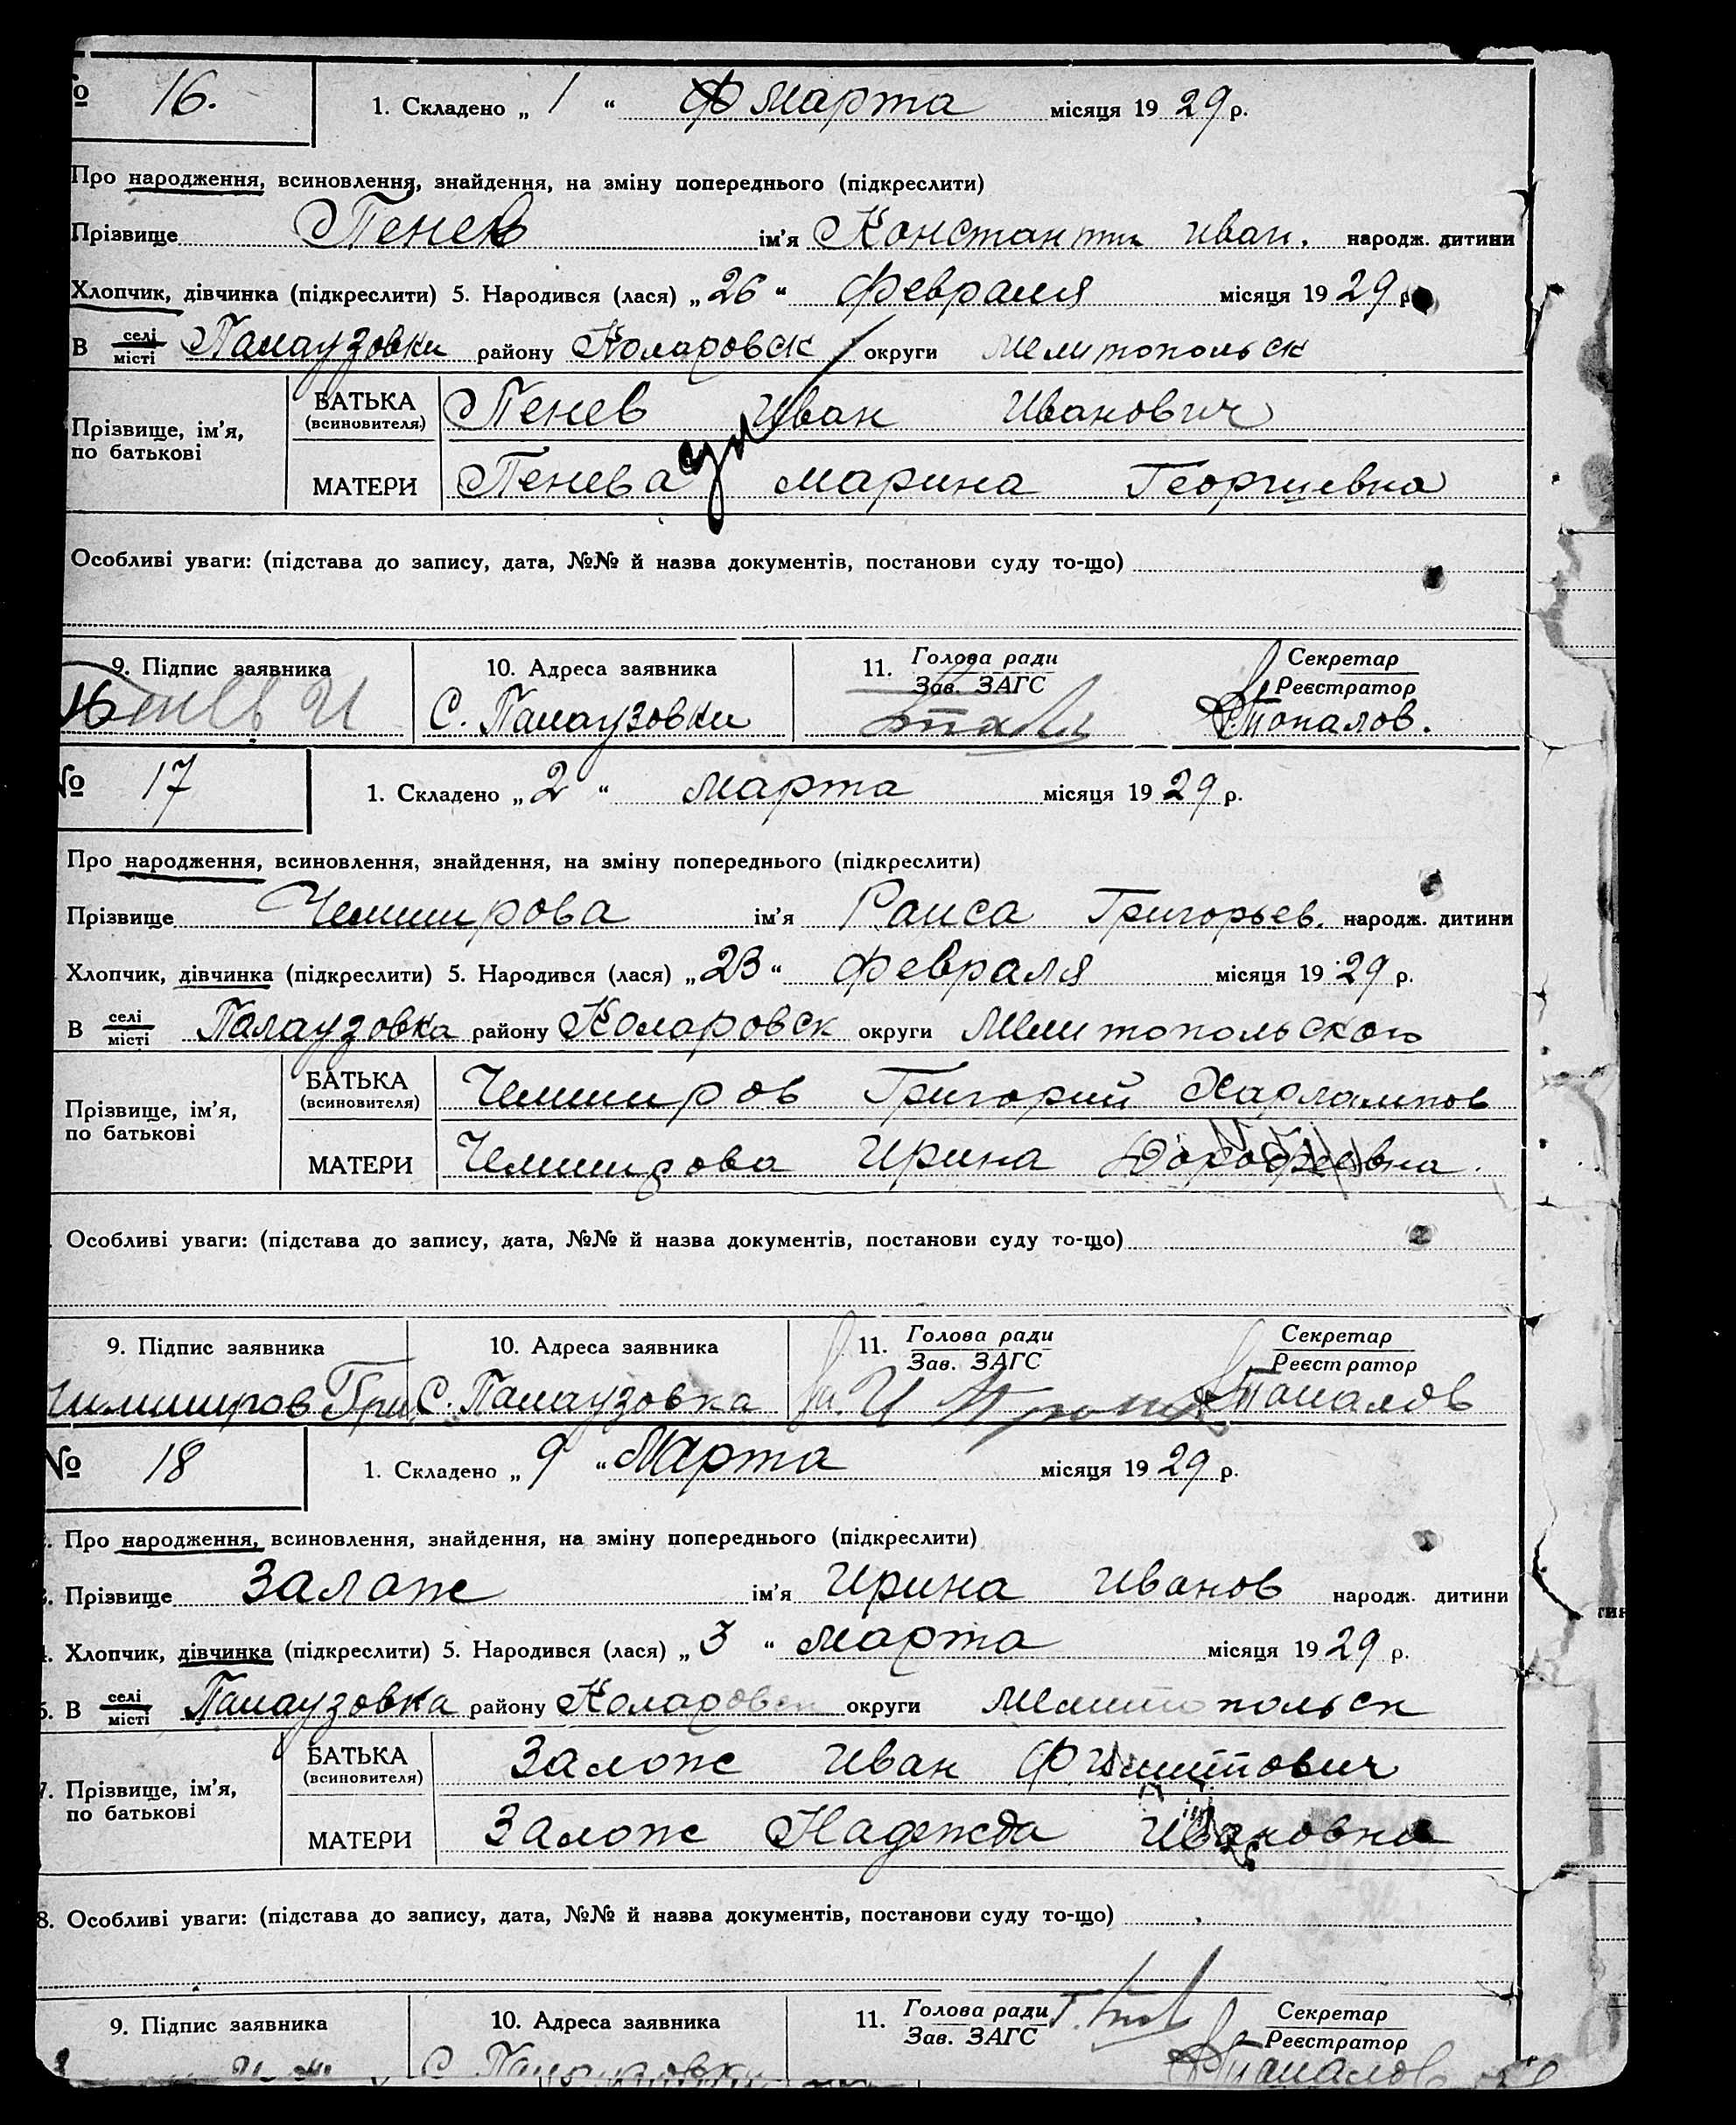 № 16. 1. Складено „ 1 “ Марта місяця 19 29 р.
Про народження, всиновлення, знайдення, на зміну попереднього (підкреслити)
Прізвище Пенев ім'я Константин Иван. народж. дитини
Хлопчик, дівчинка (підкреслити) 5. Народився (лася) „ 26 “ Февраля місяця 19 29 р.
В селі місті Палаузовки району Коларовск округи Мелитопольск
Прізвище, ім'я, по батькові
БАТЬКА (всиновителя) Пенев Иван Иванович
МАТЕРИ Пенева Марина Георгиевна
Особливі уваги: (підстава до запису, дата, №№ й назва документів, постанови суду то-що)
9. Підпис заявника 10. Адреса заявника 11. Голова ради Зав. ЗАГС Секретар Реєстратор
16 Пенев И С. Палаузовки Топалов.
№ 17 1. Складено „ 2 “ марта місяця 19 29 р.
Про народження, всиновлення, знайдення, на зміну попереднього (підкреслити)
Прізвище Чемширова ім'я Раиса Григорьев. народж. дитини
Хлопчик, дівчинка (підкреслити) 5. Народився (лася) „ 23 “ Февраля місяця 19 29 р.
В селі місті Палаузовка району Коларовск округи Мелитопольского
Прізвище, ім'я, по батькові
БАТЬКА (всиновителя) Чемширов Григорий Харлампов
МАТЕРИ Чемширова Ирина Дорофеевна.
Особливі уваги: (підстава до запису, дата, №№ й назва документів, постанови суду то-що)
9. Підпис заявника 10. Адреса заявника 11. Голова ради Зав. ЗАГС Секретар Реєстратор
Чимширов Гри С. Палаузовка Топалов
№ 18 1. Складено „ 9 “ Марта місяця 19 29 р.
Про народження, всиновлення, знайдення, на зміну попереднього (підкреслити)
Прізвище Залож ім'я Ирина Иванов народж. дитини
Хлопчик, дівчинка (підкреслити) 5. Народився (лася) „ 3 “ Марта місяця 19 29 р.
6. В селі місті Палаузовка району Коларовск округи Мелитопольск
7. Прізвище, ім'я, по батькові
БАТЬКА (всиновителя) Залож Иван Филиппович
МАТЕРИ Залож Надежда Ивановна
8. Особливі уваги: (підстава до запису, дата, №№ й назва документів, постанови суду то-що)
9. Підпис заявника 10. Адреса заявника 11. Голова ради Зав. ЗАГС Секретар Реєстратор
С. Палаузовка Топалов